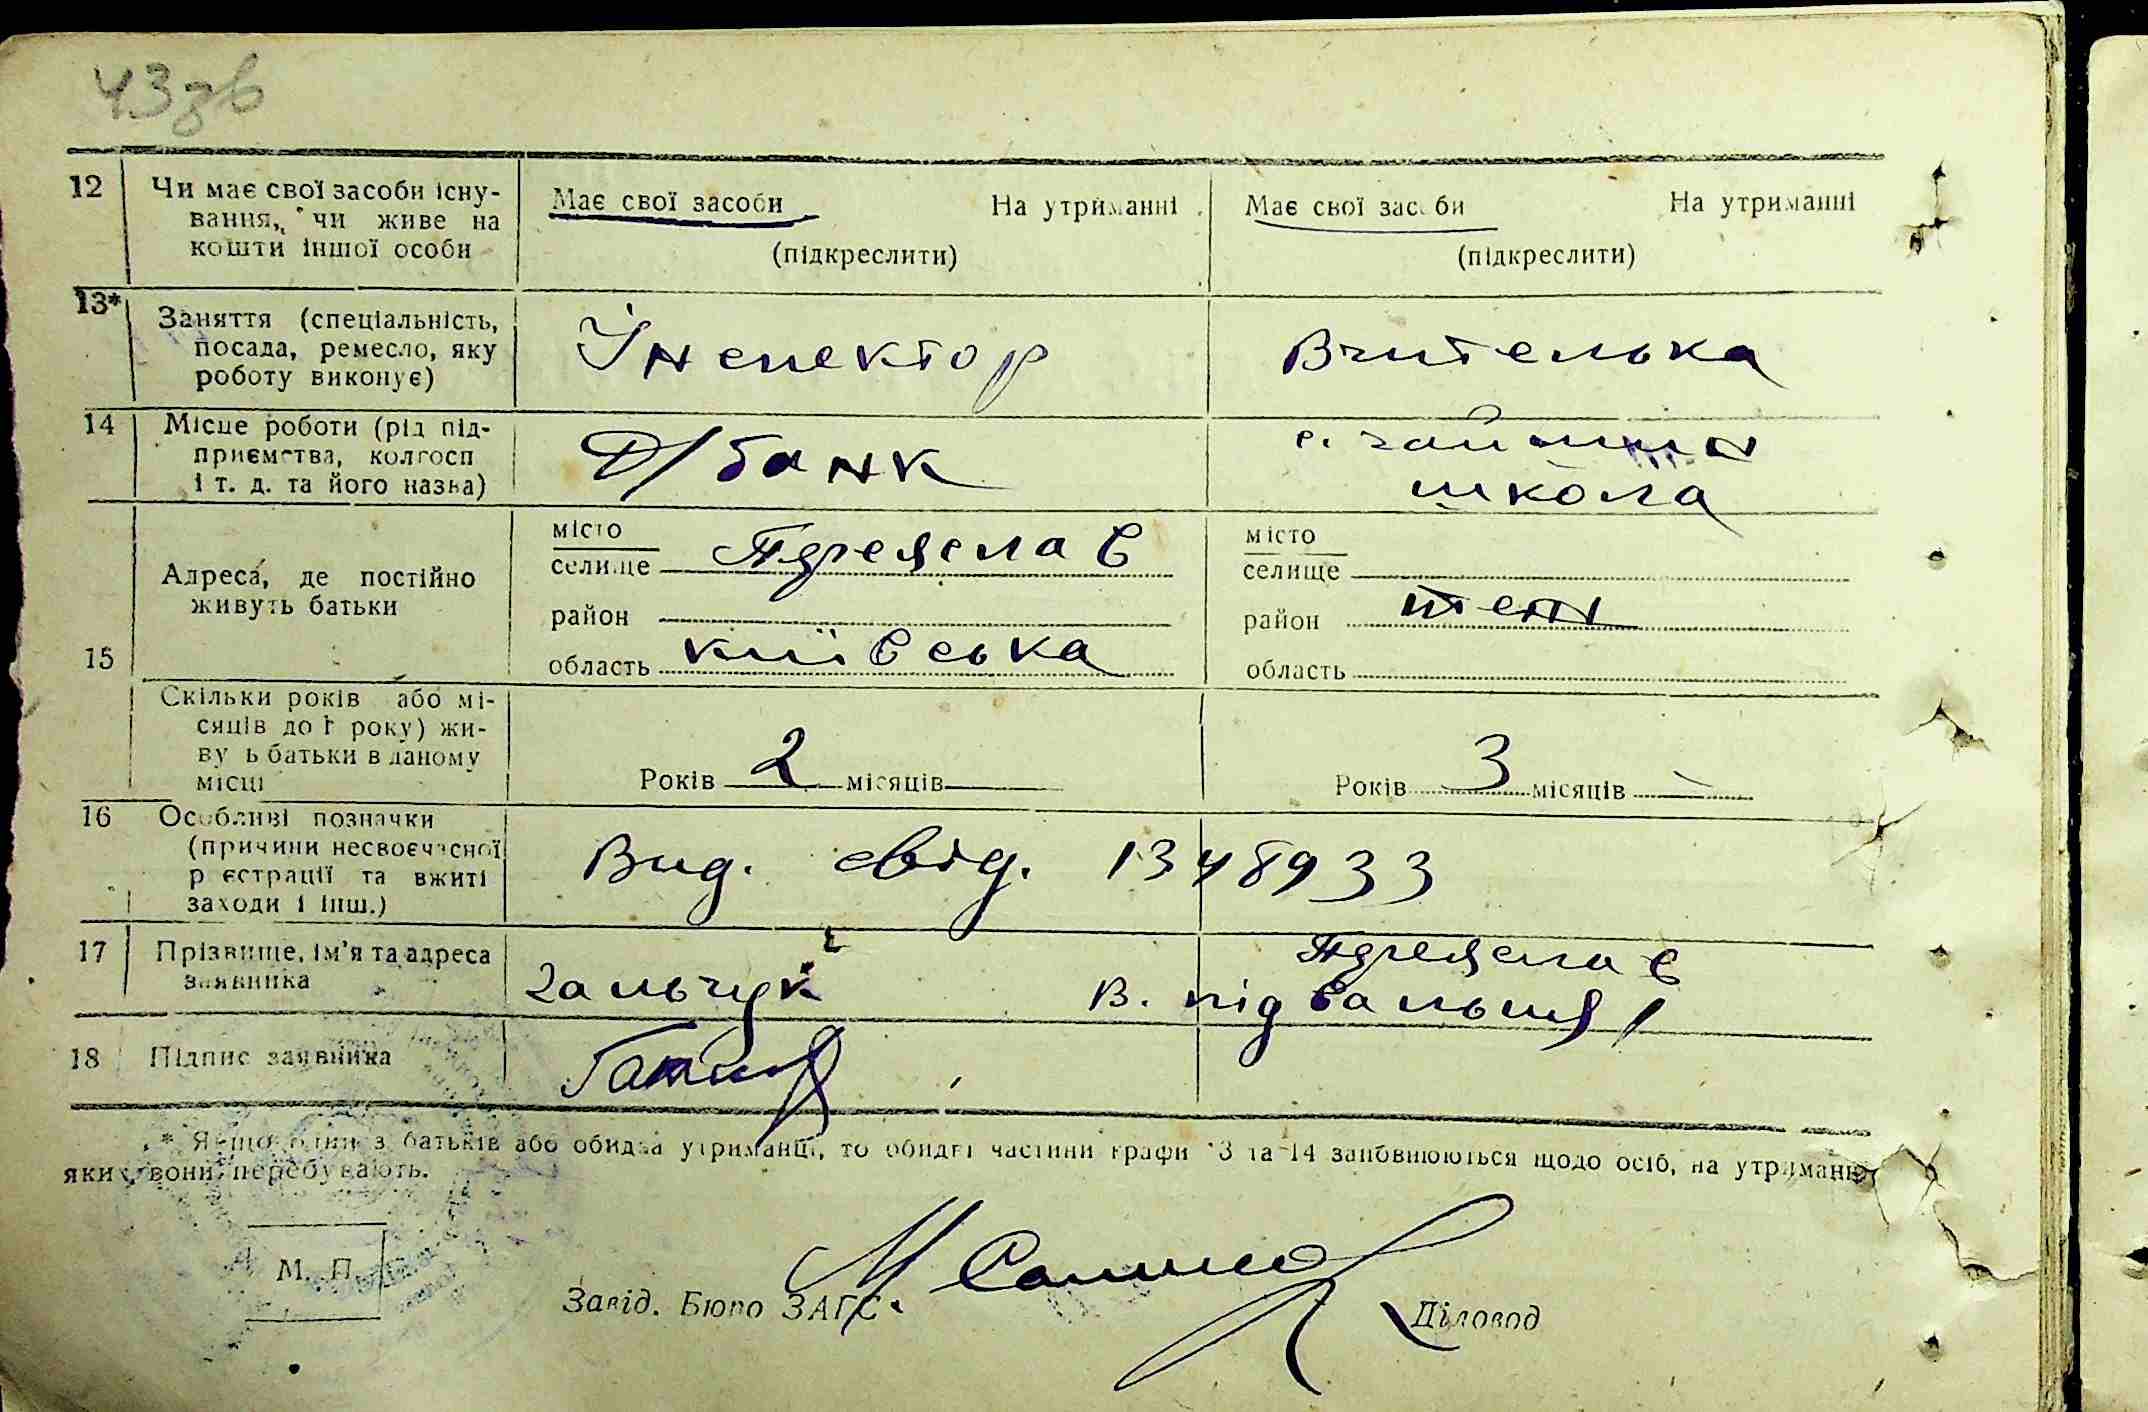 43зв
12 Чи має свої засоби існу- Має свої засоби На утриманні Має свої засоби На утриманні
вання, чи живе на
кошти іншої особи (підкреслити) (підкреслити)
13* Заняття (спеціальність,
посада, ремесло, яку Інспектор Вчителька
роботу виконує)
14 Місце роботи (рід під-
приємства, колгосп Д/банк с.
і т. д. та його назва) школа
місто місто
селище Переяслав селище
Адреса, де постійно
живуть батьки
район район теж
15 область київська область
Скільки років або мі-
сяців до 1 року) жи-
вуть батьки в даному
місці Років 2 місяців Років 3 місяців —
16 Особливі позначки
(причини несвоєчасної
реєстрації та вжиті Вид. свід. 1348933
заходи і інш.)
17 Прізвище, ім'я та адреса Переяслав
заявника Гальчук В. підвальна 1
18 Підпис заявника
* Якщо один з батьків або обидва утриманці, то обидві частини графи 13 та 14 заповнюються щодо осіб, на утриманні
яких вони перебувають.
М. П.
Завід. Бюро ЗАГС. Діловод